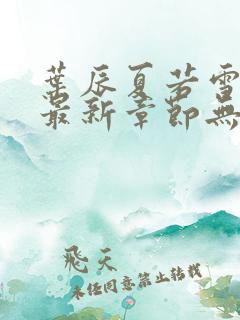 葉辰夏若雪
最新章節無
飛天
未经同意禁止转载